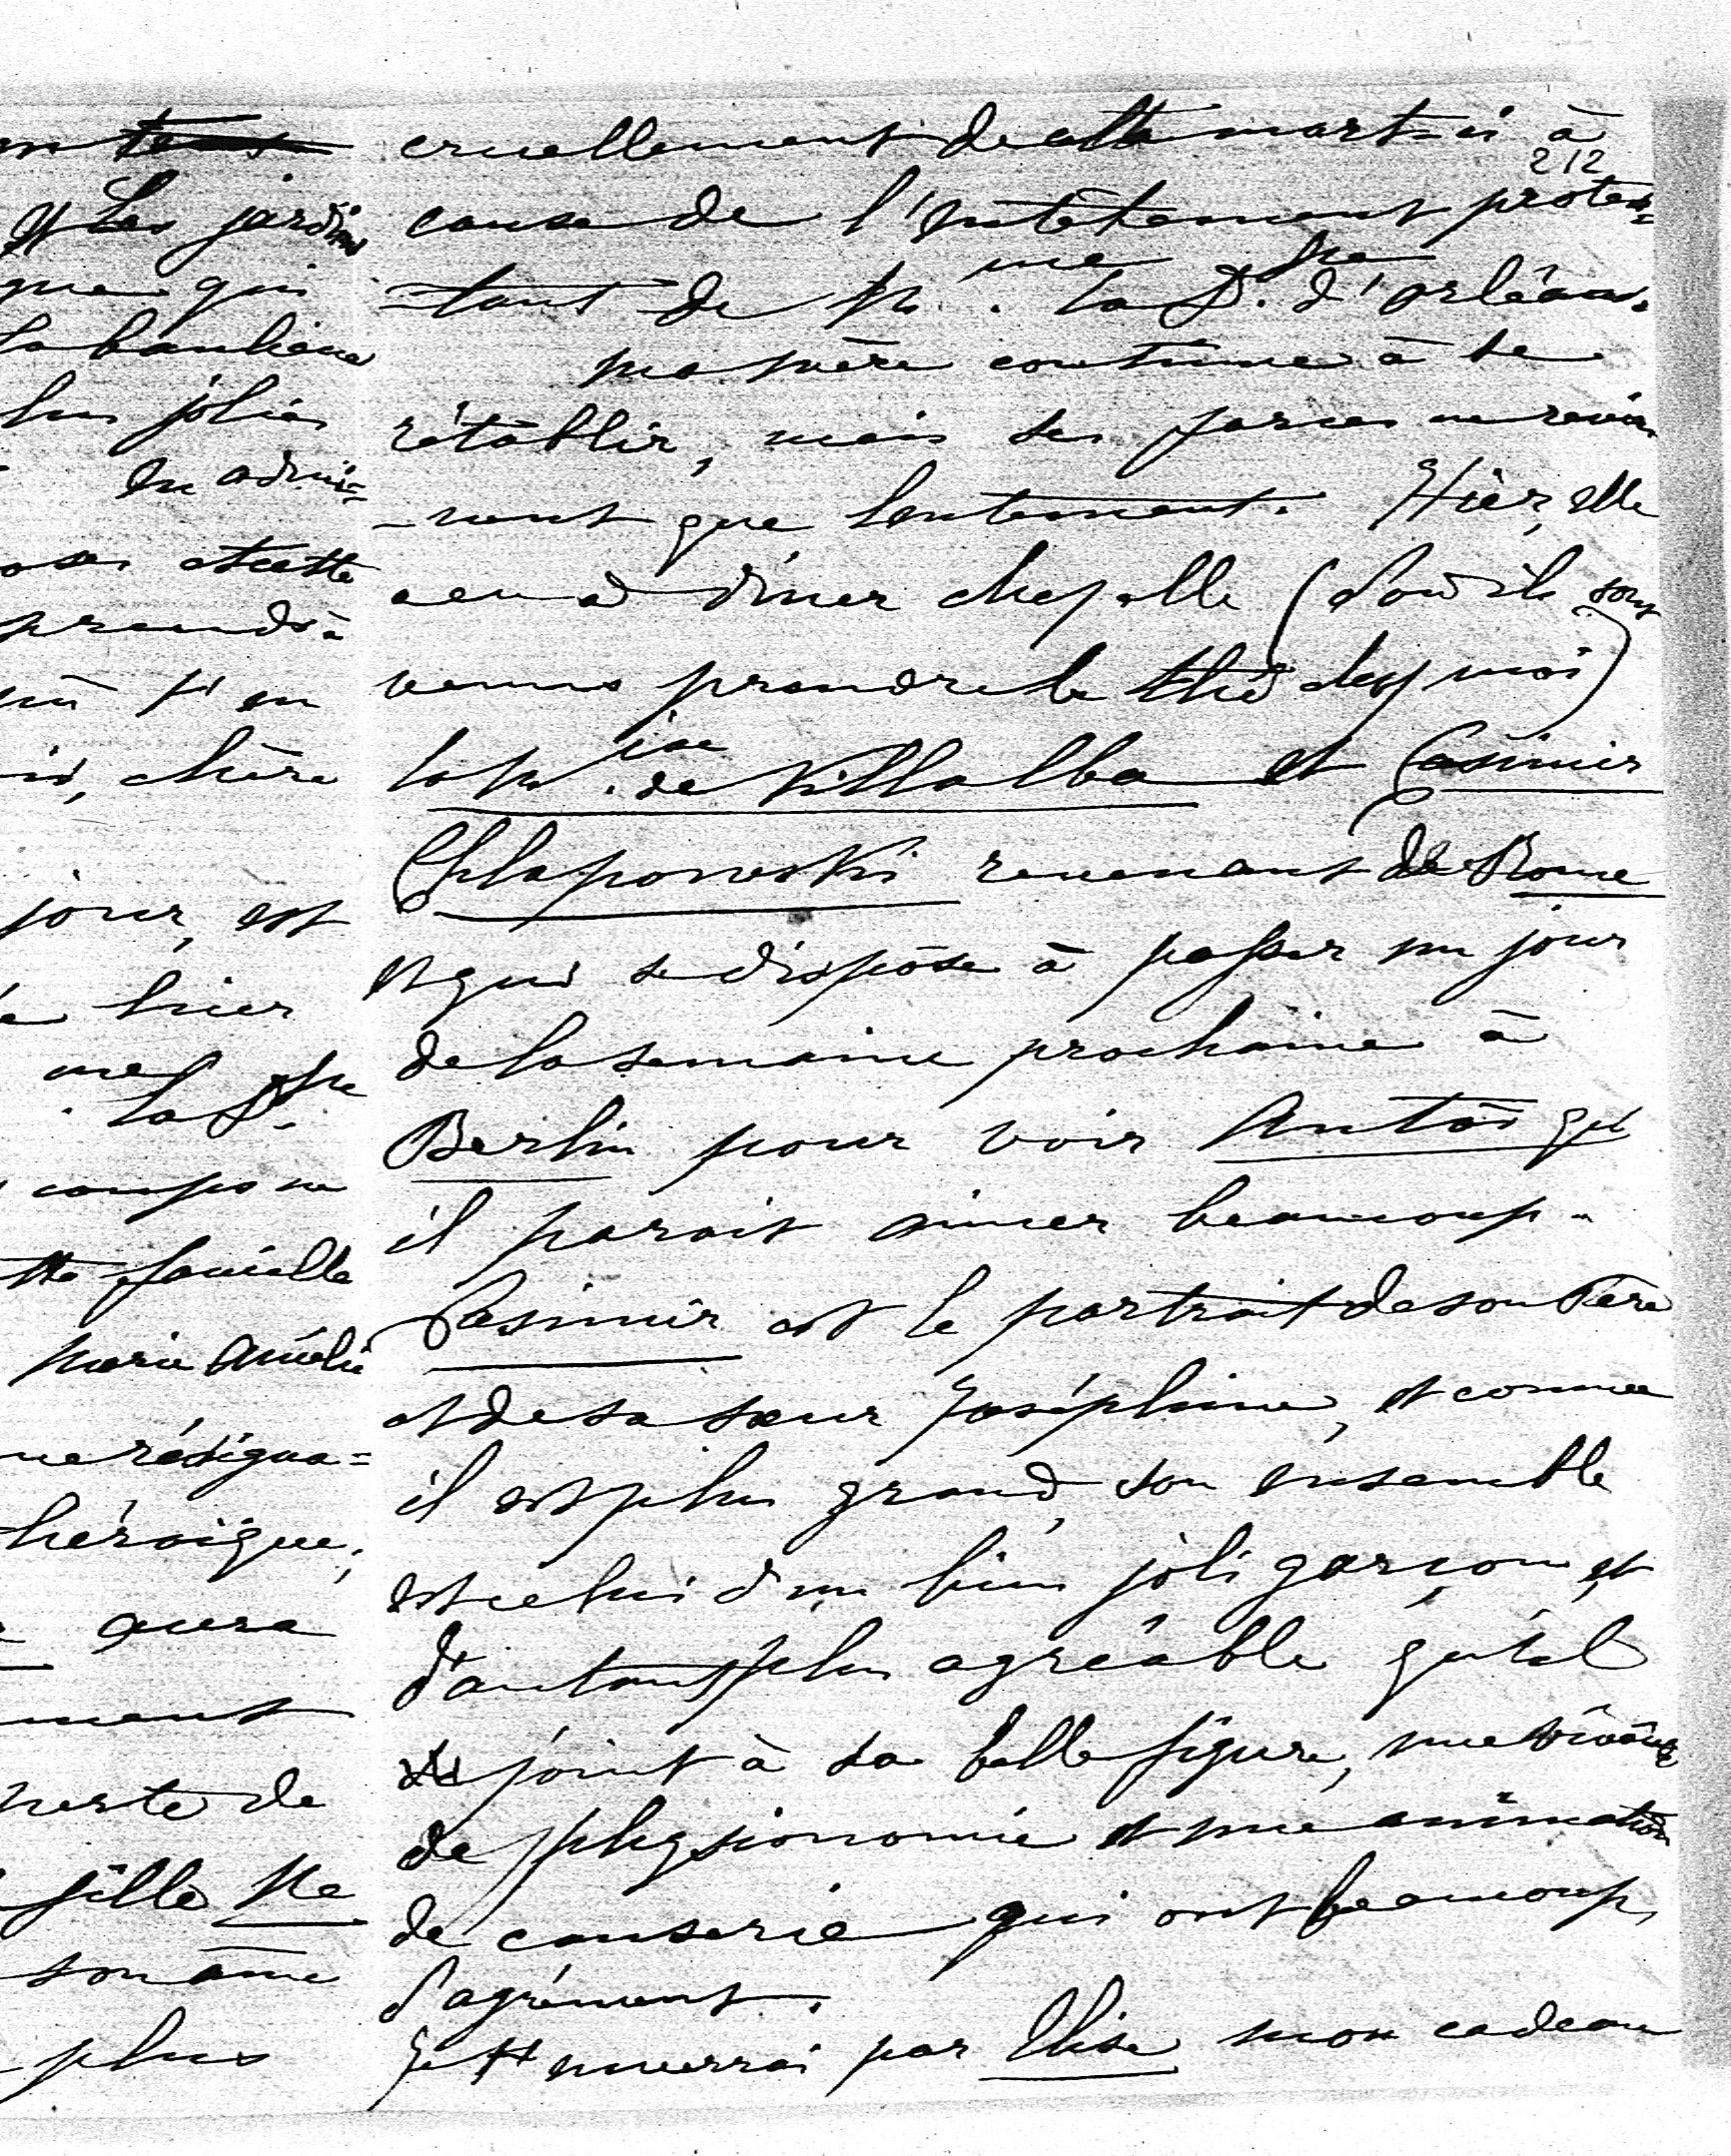 en
et Les jardins
que qui
la banlieue
plus jolies
en admi=
et cette
prends à
t'en
chère
jour, est
hier
me
la D.sse
compose
famille
Marie Amélie
ne résigna=
héroïque;
aura
ment
perte de
fille Ne
son âme
plus
cruellement de cette mort-ci à
212
cause de l'entêtement protes=
=tant de M.me la D.sse d'Orléans.
Ma mère continue à se
rétablir, mais ses forces ne revien
-nent que lentement. Hier, elle
a eu à diner chez elle (d'où ils sont
venus prendre le thé chez moi)
la M.ise de Villalba et Casimir
Chlapowski revenant de Rome
et qui se dispose à passer un jour
de la semaine prochaine à
Berlin pour voir Antoi qu'
il parait aimer beaucoup.
Casimir est le portrait de son Père
et de sa sœur Joséphine, et comme
il est plus grand, son ensemble
est celui d'un bien joli garçon et
d'autant plus agréable qu'il
joint à sa belle figure, une vivacité
de physionomie et une animation
de causerie qui ont beaucoup
d'agrément.
Je t'enverrai par Elise mon cadeau